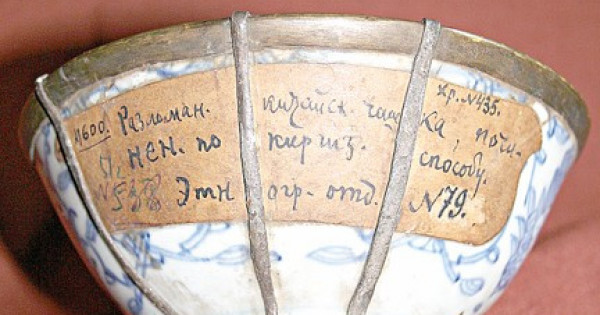 Кр. №435.
И600. Разломан. китайск. чашка, почи-
нен. по киргиз. способу.
№538 Этногр. отд. №79.